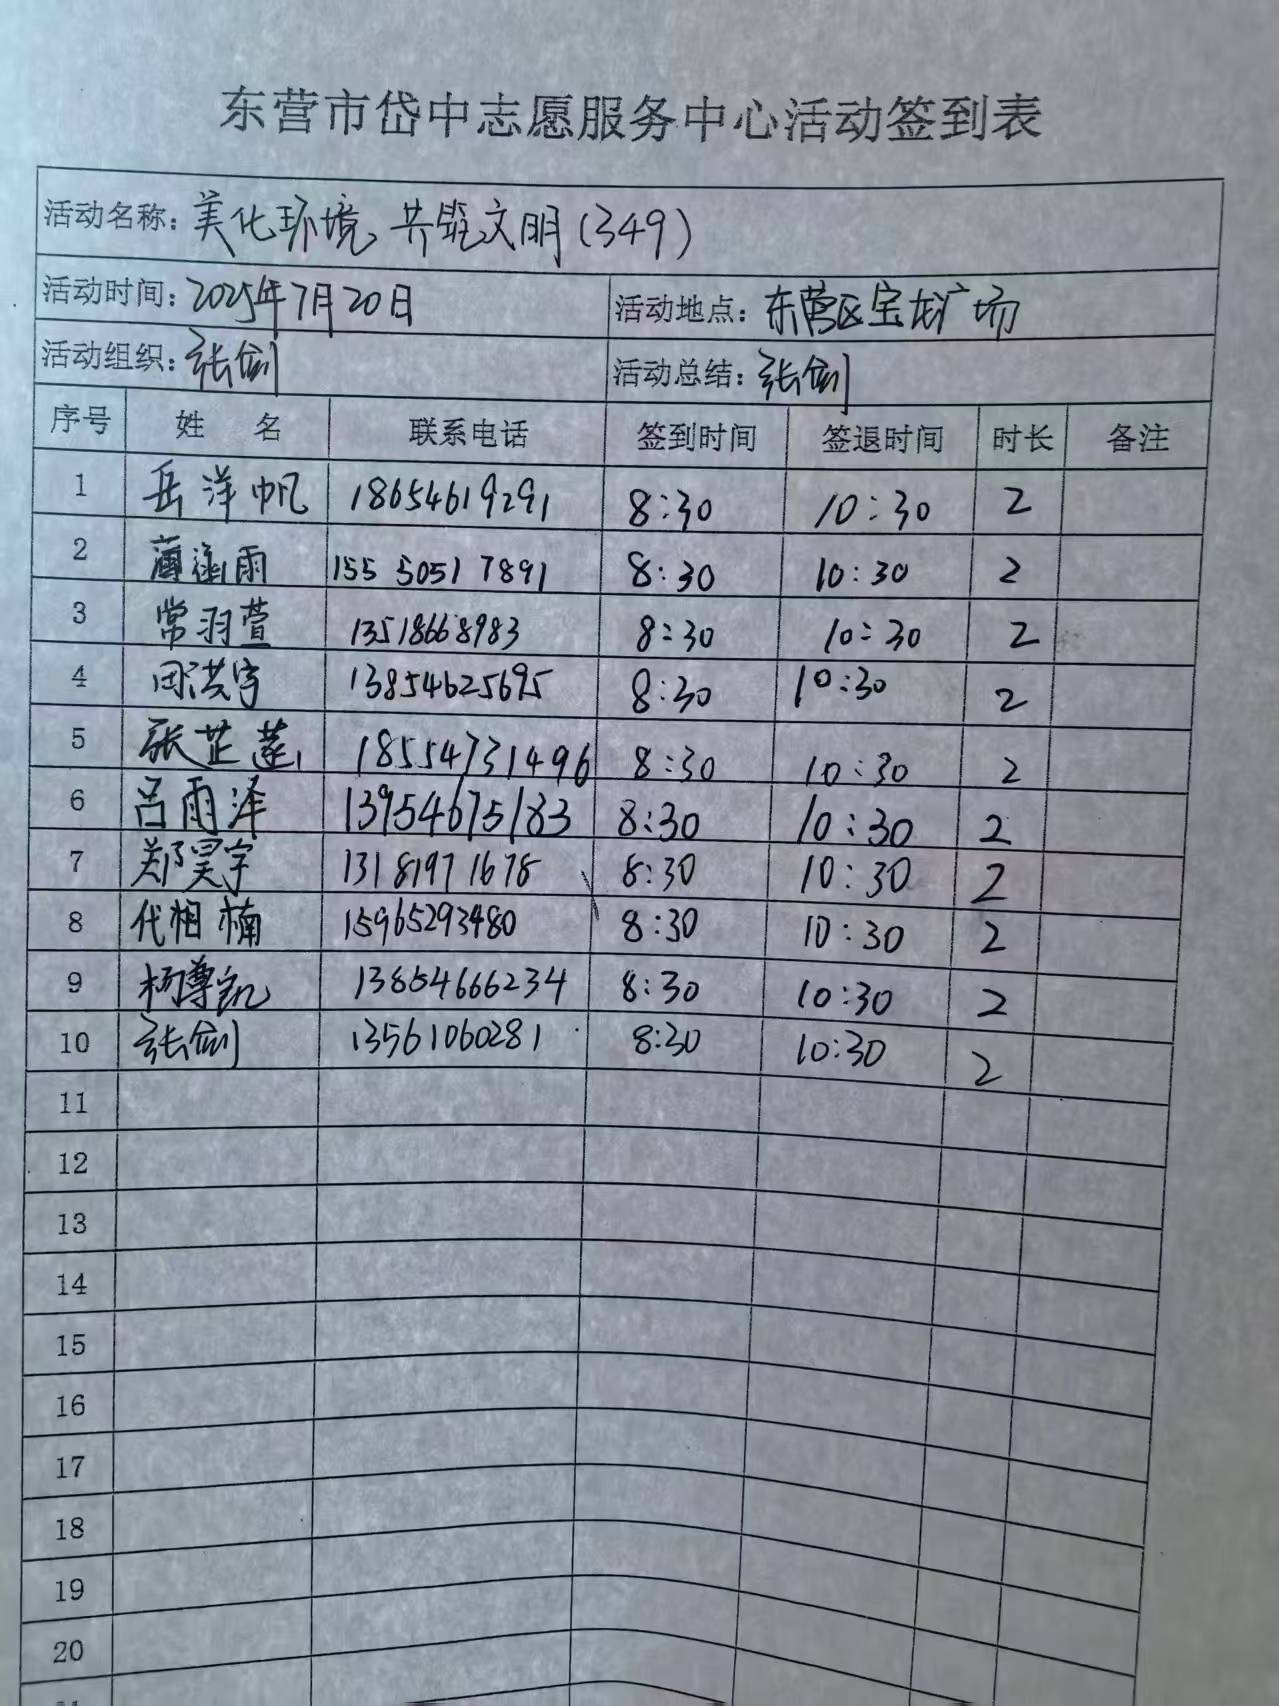 东营市岱中志愿服务中心活动签到表
活动名称：美化环境 共筑文明（349）
活动时间：2025年7月20日 活动地点：东营区宝龙广场
活动组织：张剑 活动总结：张剑
序号 姓 名 联系电话 签到时间 签退时间 时长 备注
1 岳洋帆 18654619291 8:30 10:30 2
2 薄 雨 155 5051 7891 8:30 10:30 2
3 常羽萱 13518668983 8:30 10:30 2
4 周洪宇 13854625695 8:30 10:30 2
5 张芷 18554731496 8:30 10:30 2
6 吕雨泽 13954675183 8:30 10:30 2
7 郑昊宇 13181971678 8:30 10:30 2
8 代相楠 15965293480 8:30 10:30 2
9 杨尊凯 13854666234 8:30 10:30 2
10 张剑 13561060281 8:30 10:30 2
11
12
13
14
15
16
17
18
19
20